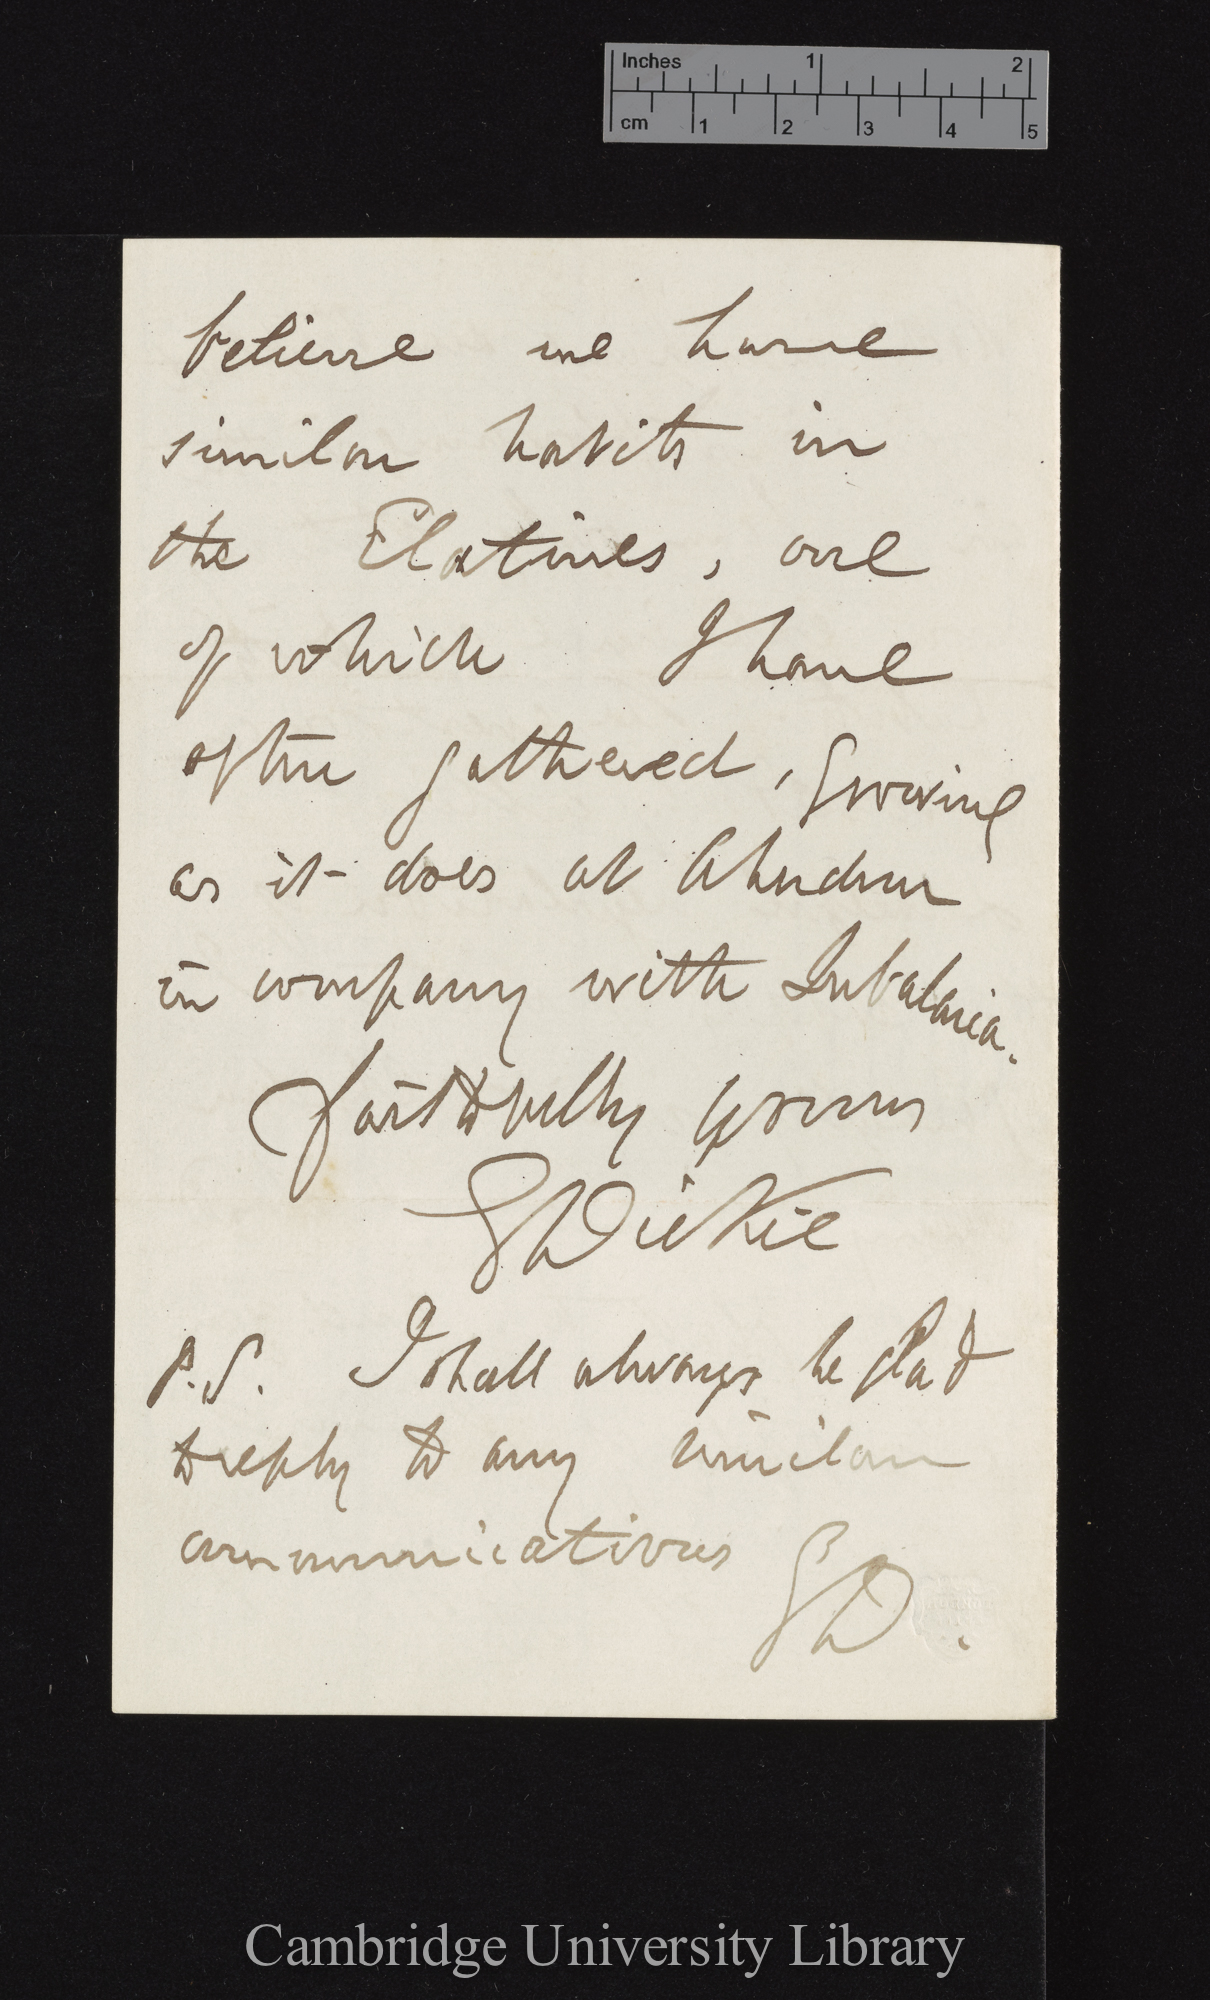 Inches 1 2
cm 1 2 3 4 5
believe we have
similar habits in
the Elatines, one
of which I have
often gathered, growing
as it does at
in company with Subularia.
Faithfully yours
G Dickie
P.S. I shall always be glad
to reply to any similar
communications GD.
Cambridge University Library